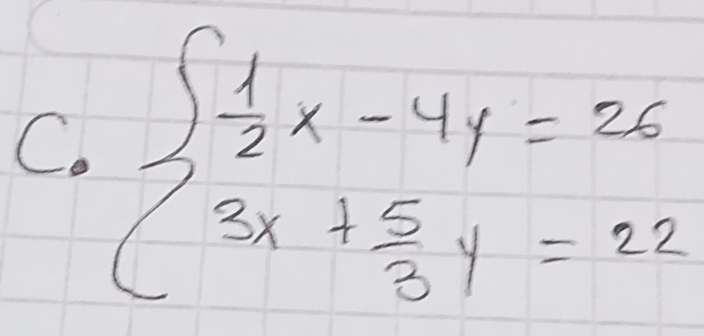 C. { 1/2 x - 4y = 26
3x + 5/3 y = 22